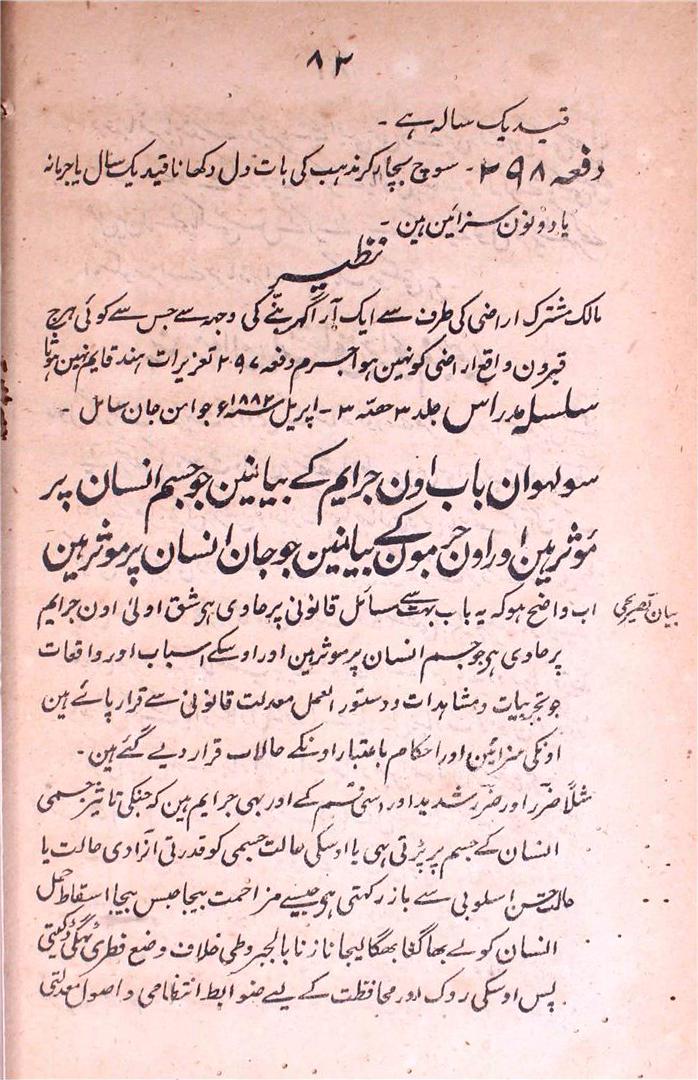 ۸۲
قید یک سالہ ہے ۔
دفعہ ۲۹۸ ۔ سوچ بچار کر مذہب کی بات دل دکھانا قید یک سال یا جرمانہ
یا دونون سزائین ہین ۔
نظیر
مالک مشترک اراضی کی طرف سے ایک آرا گہر بننے کی وجہ سے جس سے کوئی ہرج
قبرون واقع اراضی کو نہین ہوا جرم دفعہ ۲۹۷ تعزیرات ہند قایم نہین ہوتا
سلسلہ مدراس جلد ۳ حصہ ۳ ۔ اپریل ۱۸۸۲ء جوا من جان سائل ۔
سولہوان باب اون جرایم کے بیانمین جو جسم انسان پر
مؤثر ہین اور اون جرمون کے بیانمین جو جان انسان پر موثر ہین
بیان تصریحی
اب واضح ہو کہ یہ باب بہت سے مسائل قانونی پر حاوی ہر شق اولیٰ اون جرایم
پر حاوی ہی جو جسم انسان پر موثر ہین اور اوسکے اسباب اور واقعات
جو تجربیات و مشاہدات و دستور العمل معدلت قانونی سے قرار پائے ہین
اونکی سزائین اور احکام باعتبار اونکے حالات قرار دیے گئے ہین ۔
مثلاً ضرر اور ضرر شدید اور اسی قسم کے اور بہی جرایم ہین کہ جنکی تاثیر جسمی
انسان کے جسم پر پڑتی ہی یا اوسکی حالت جسمی کو قدرتی آزادی حالت یا
حالت حسن اسلوبی سے باز رکہتی ہی جیسے مزاحمت بیجا حبس بیجا اسقاط حمل
انسان کو لے بھاگنا بھگا لیجانا زنا بالجبر وطی خلاف وضع فطری ٹہگی ڈکیتی
پس اوسکی روک اور محافظت کے لیے ضوابط انتظامی و اصول معدلتی